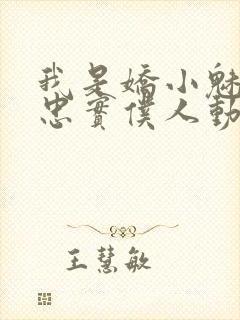 我是嬌小魅
忠實僕人動
王慧敏